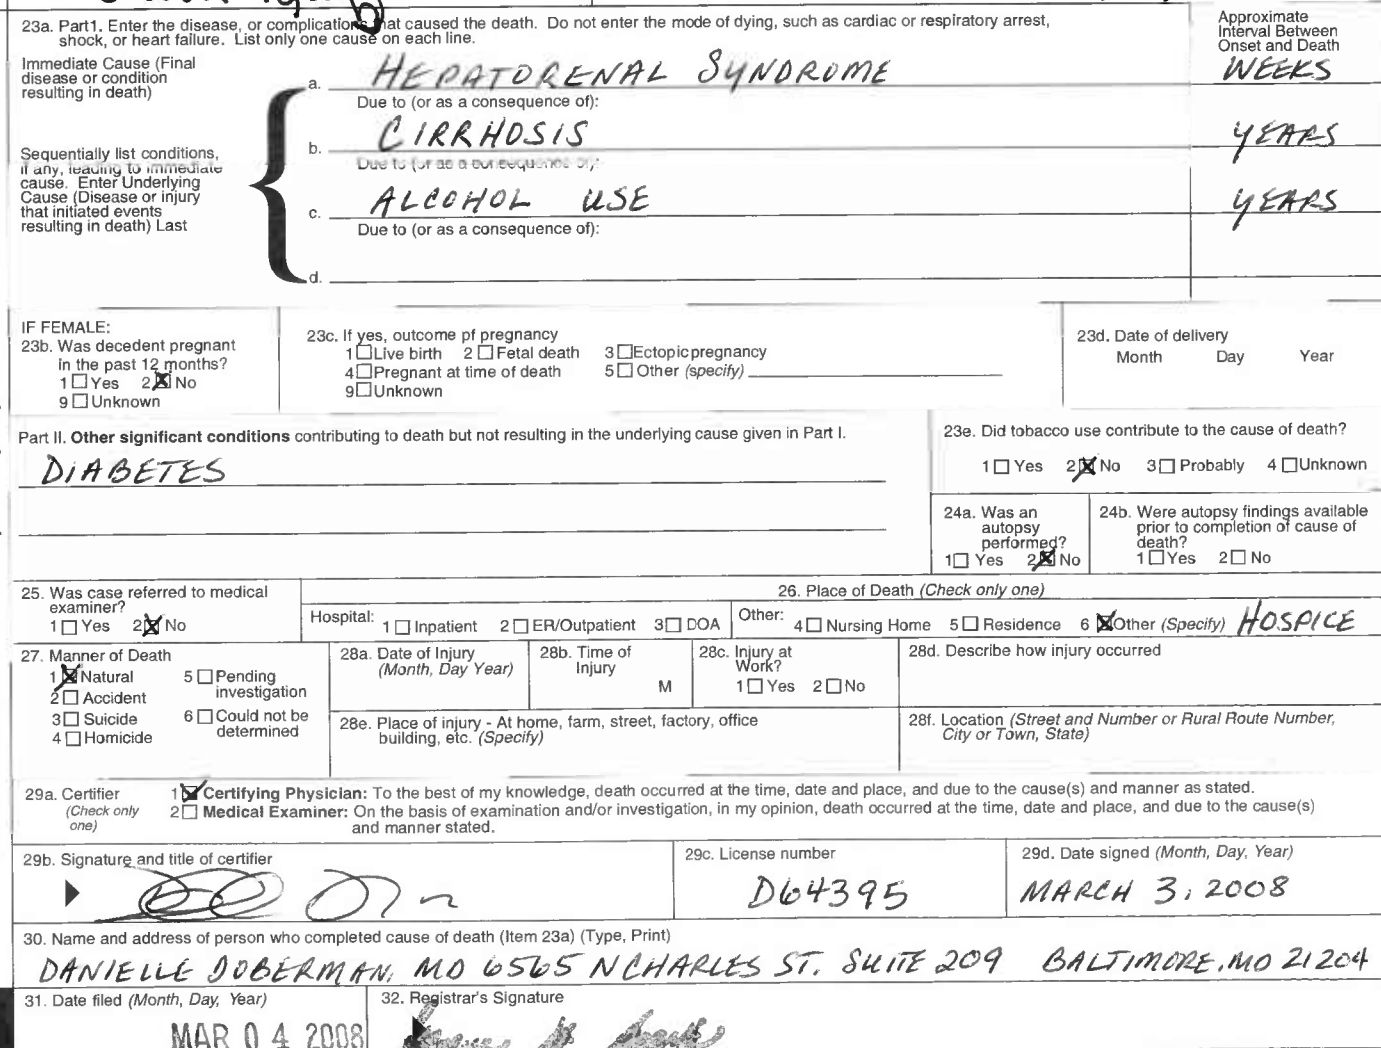 23a. Part1. Enter the disease, or complications that caused the death. Do not enter the mode of dying, such as cardiac or respiratory arrest,
shock, or heart failure. List only one cause on each line.
Approximate
Interval Between
Onset and Death
Immediate Cause (Final
disease or condition
resulting in death)
a. HEPATORENAL SYNDROME WEEKS
Due to (or as a consequence of):
b. CIRRHOSIS YEARS
Sequentially list conditions,
if any, leading to immediate
cause. Enter Underlying
Cause (Disease or injury
that initiated events
resulting in death) Last
Due to (or as a consequence of):
c. ALCOHOL USE YEARS
Due to (or as a consequence of):
d.
IF FEMALE:
23b. Was decedent pregnant
in the past 12 months?
1 Yes 2 No
9 Unknown
23c. If yes, outcome pf pregnancy
1 Live birth 2 Fetal death 3 Ectopic pregnancy
4 Pregnant at time of death 5 Other (specify)
9 Unknown
23d. Date of delivery
Month Day Year
Part II. Other significant conditions contributing to death but not resulting in the underlying cause given in Part I.
DIABETES
23e. Did tobacco use contribute to the cause of death?
1 Yes 2 No 3 Probably 4 Unknown
24a. Was an
autopsy
performed?
1 Yes 2 No
24b. Were autopsy findings available
prior to completion of cause of
death?
1 Yes 2 No
25. Was case referred to medical
examiner?
1 Yes 2 No
26. Place of Death (Check only one)
Hospital: 1 Inpatient 2 ER/Outpatient 3 DOA Other: 4 Nursing Home 5 Residence 6 Other (Specify) HOSPICE
27. Manner of Death
1 Natural 5 Pending
investigation
2 Accident
3 Suicide 6 Could not be
determined
4 Homicide
28a. Date of Injury
(Month, Day Year)
28b. Time of
Injury
M
28c. Injury at
Work?
1 Yes 2 No
28d. Describe how injury occurred
28e. Place of injury - At home, farm, street, factory, office
building, etc. (Specify)
28f. Location (Street and Number or Rural Route Number,
City or Town, State)
29a. Certifier
(Check only
one)
1 Certifying Physician: To the best of my knowledge, death occurred at the time, date and place, and due to the cause(s) and manner as stated.
2 Medical Examiner: On the basis of examination and/or investigation, in my opinion, death occurred at the time, date and place, and due to the cause(s)
and manner stated.
29b. Signature and title of certifier
29c. License number
D64395
29d. Date signed (Month, Day, Year)
MARCH 3, 2008
30. Name and address of person who completed cause of death (Item 23a) (Type, Print)
DANIELLE DOBERMAN, MD 6565 N CHARLES ST. SUITE 209 BALTIMORE, MD 21204
31. Date filed (Month, Day, Year)
MAR 04 2008
32. Registrar's Signature